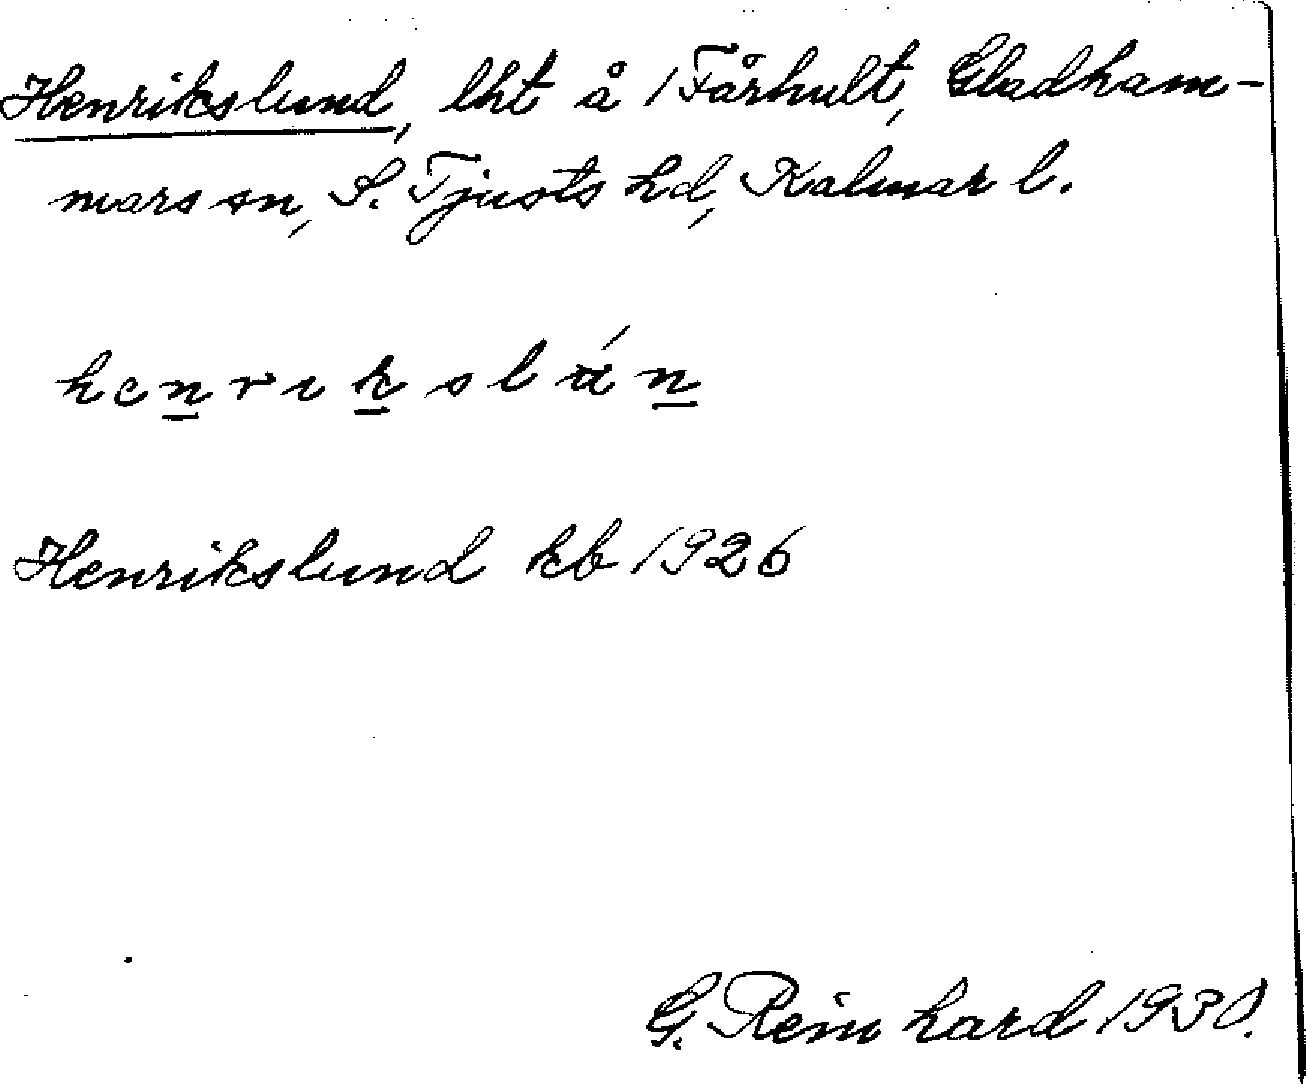 Henrikslund, lht å /Fårhult, Gladham-
mars sn, S. Tjusts hd, Kalmar l.
Henrikslund kb 1926
G. Reinhard 1930.